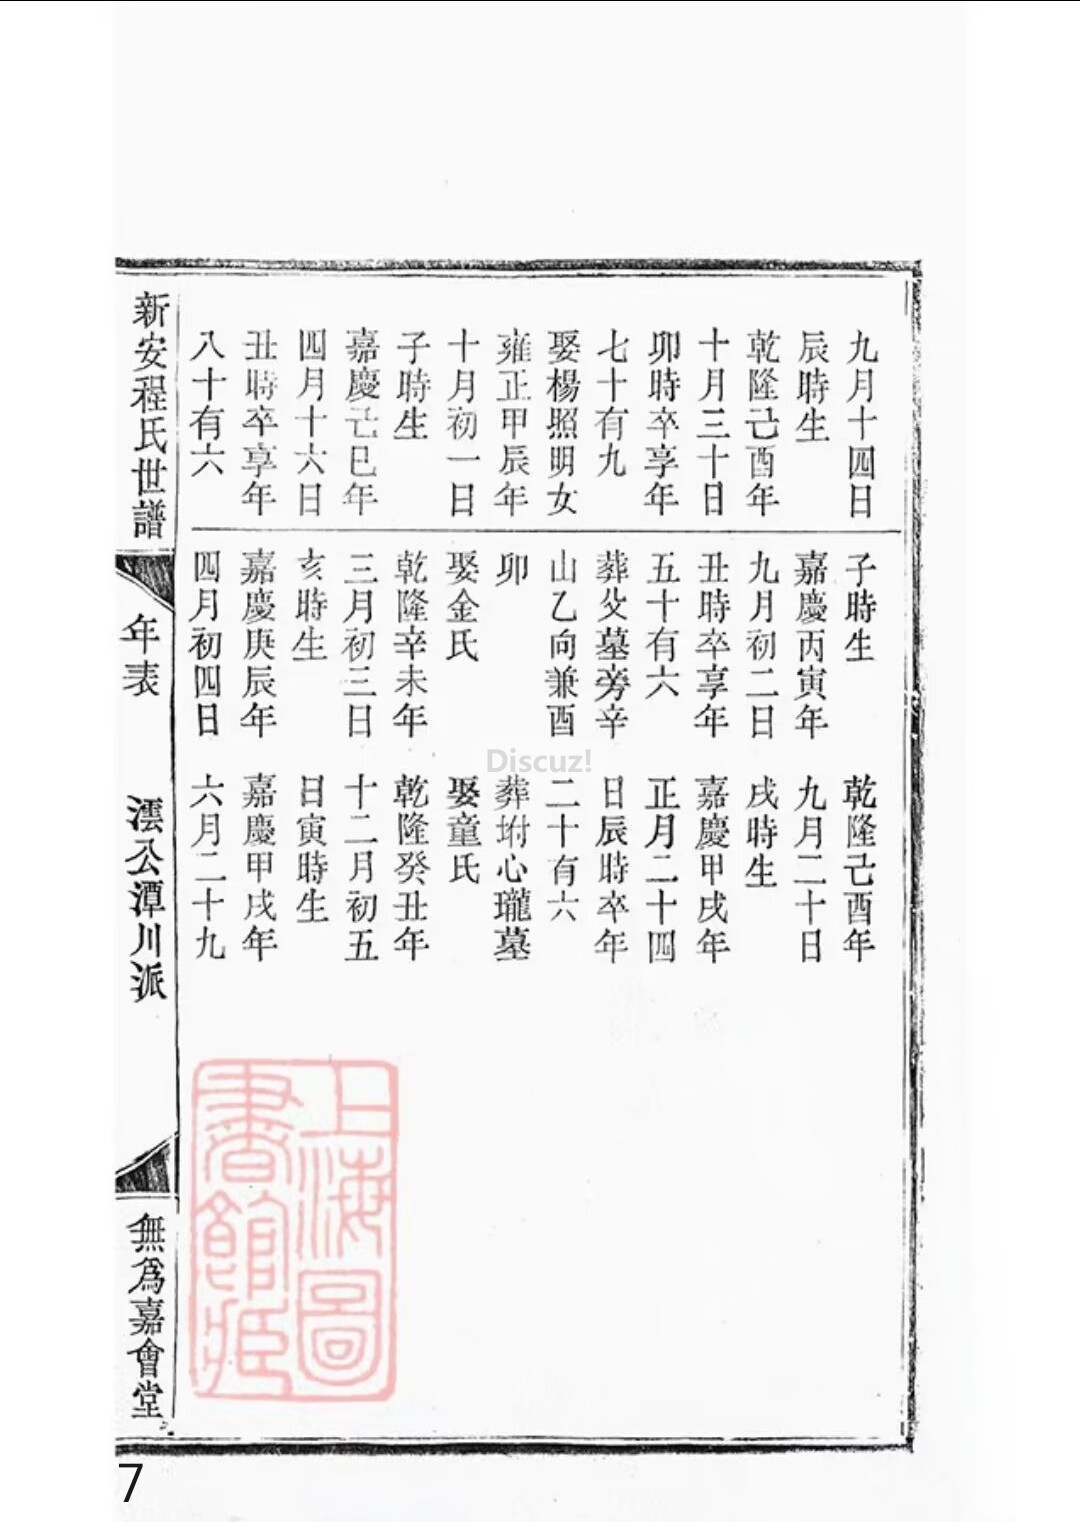 九月十四日
辰時生
乾隆己酉年
十月三十日
卯時卒享年
七十有九
娶楊照明女
雍正甲辰年
十月初一日
子時生
嘉慶己巳年
四月十六日
丑時卒享年
八十有六
子時生
嘉慶丙寅年
九月初二日
丑時卒享年
五十有六
葬父墓旁辛
山乙向兼酉
卯
娶金氏
乾隆辛未年
三月初三日
亥時生
嘉慶庚辰年
四月初四日
乾隆己酉年
九月二十日
戌時生
嘉慶甲戌年
正月二十四
日辰時卒年
二十有六
葬坿心瓏墓
娶童氏
乾隆癸丑年
十二月初五
日寅時生
嘉慶甲戌年
六月二十九
新安程氏世譜
年表
澐公潭川派
無爲嘉會堂
上海圖
書館藏
Discuz!
7